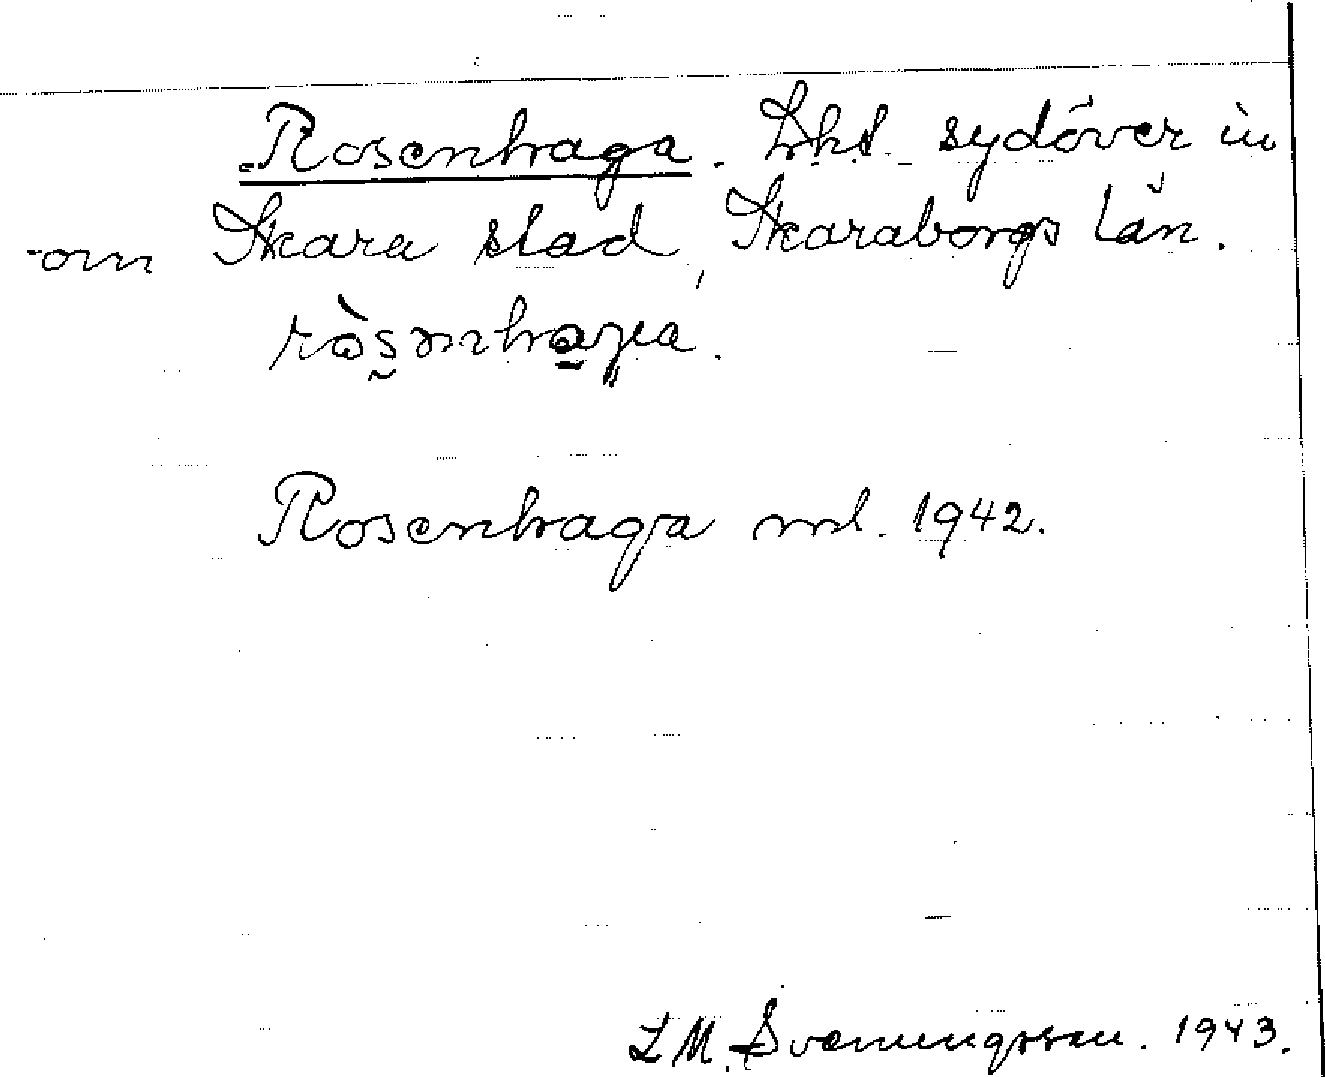 Rosenhaga. Lht. sydöver in
-om Skara stad, Skaraborgs län.
ròsənhaga.
Rosenhaga ml. 1942.
L M. Svenningsson. 1943.